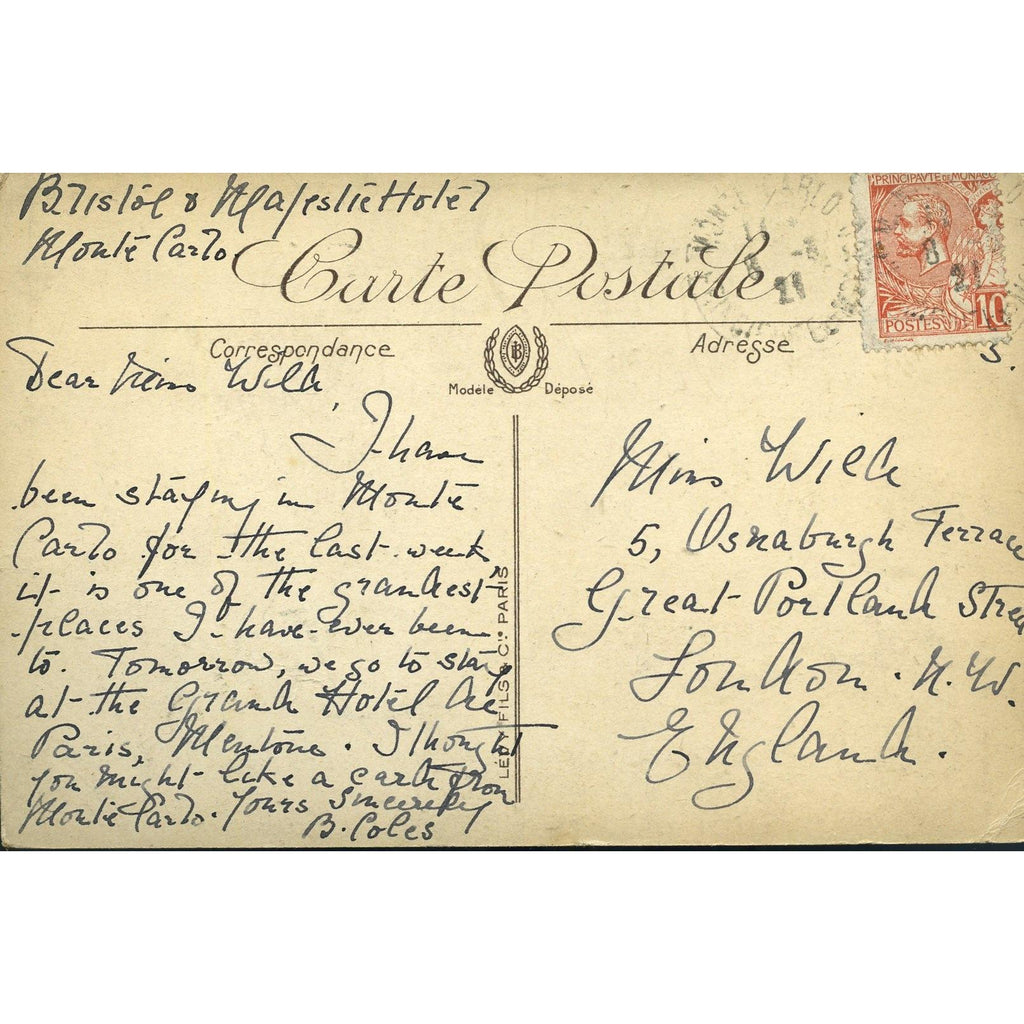 Bristol & Majestic Hotel
Monte Carlo
Carte Postale
Correspondance
Adresse
Modèle Déposé
PRINCIPAUTÉ DE MONACO
POSTES
10
Dear Miss Wild
I have
been staying in Monte
Carlo for the last week
it is one of the grandest
places I have ever been
to. Tomorrow, we go to stay
at the Grand Hotel de
Paris, Mentone. I thought
you might like a card from
Monte Carlo. Yours Sincerely
B. Coles
LEVY FILS & Cie PARIS
Miss Wild
5, Osnaburgh Terrace
Great Portland Street
London. N.W.
England.